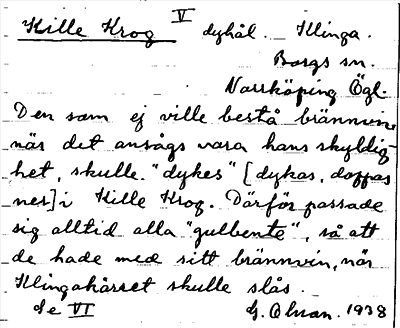 Kille Krog V dyhål. Klinga.
Borgs sn.
Norrköping Ögl.
Den som ej ville bestå brännvin
när det ansågs vara hans skyldig-
het, skulle "dykes" [dykas, doppas
ner] i Kille Krog. Därför passade
sig alltid alla "gulbente", så att
de hade med sitt brännvin, när
Klingakärret skulle slås.
Se VI G. Olsson. 1938